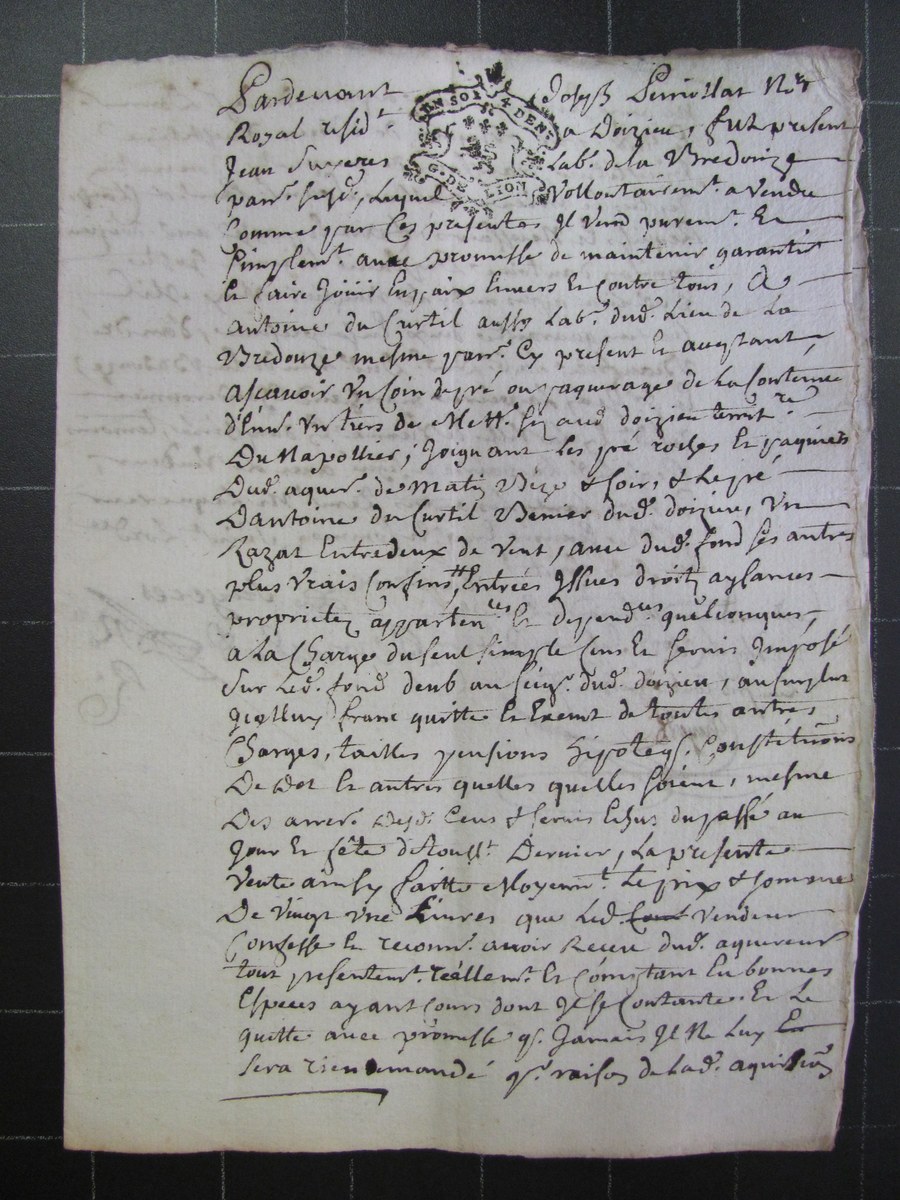 Pardevant Joseph Perrollat Nre
Royal resid.t a Doizieu, fut present
Jean Lab.r de la Bredouze
par.e sus.d, Lequel Vollontairem.t a vendu
Comme par Ces presentes Il vend purem.t Et
Simplem.t avec promesse de maintenir garantir
Et faire Joüir En paix Envers Et contre tous, A
antoine du Curtil aussy Lab.r dud. Lieu de La
Bredouze mesme par.e Cy present Et aceptant,
ascavoir Vn Coin de pré ou paquerage de la Contenue
d'Env.n Vn tiers de Mett.e sis aud. doizieu territ.re
Du Napollier, Joignant Les pré roches Et paquiers
Dud. aquer.r de matin Bize & soir, & Le pré
Dantoine du Curtil Benier dud. doizieu, Vn
Razat Entredeux de Vent, avec dud. fond ses autres
plus vrais Confins, Entrées Issues droits aysances
proprietez apparten.ces Et depend.ces quelconques,
a La Charge du seul simple Cens Et servis Imposé
Sur Led. fond deub au Seig.r dud. doizieu, au surplus
Icelluy franc quitte Et Exemt de toutes autres
Charges, tailles pensions hipoteq. Constitutions
De dot Et autres quelles quelles soient, mesme
Des arrer. Desd. Cens & servis Echus du passé au
Jour Et fête de Tousst. Dernier, La presente
Vente ainsy faitte Moyenn.t Le prix & somme
De vingt une Livres que Led. vendeur
Confesse Et reconn.t avoir Receu dud. aquereur
tout presentem.t réellem.t Et Comptant En bonnes
Especes ayant Cours dont Il se Contante. Et Le
quitte avec promesse q. Jamais Il Ne Luy En
Sera rien demandé p.r raison de Lad. aquisition
GEN SOL 4 DENT
G. DE LION